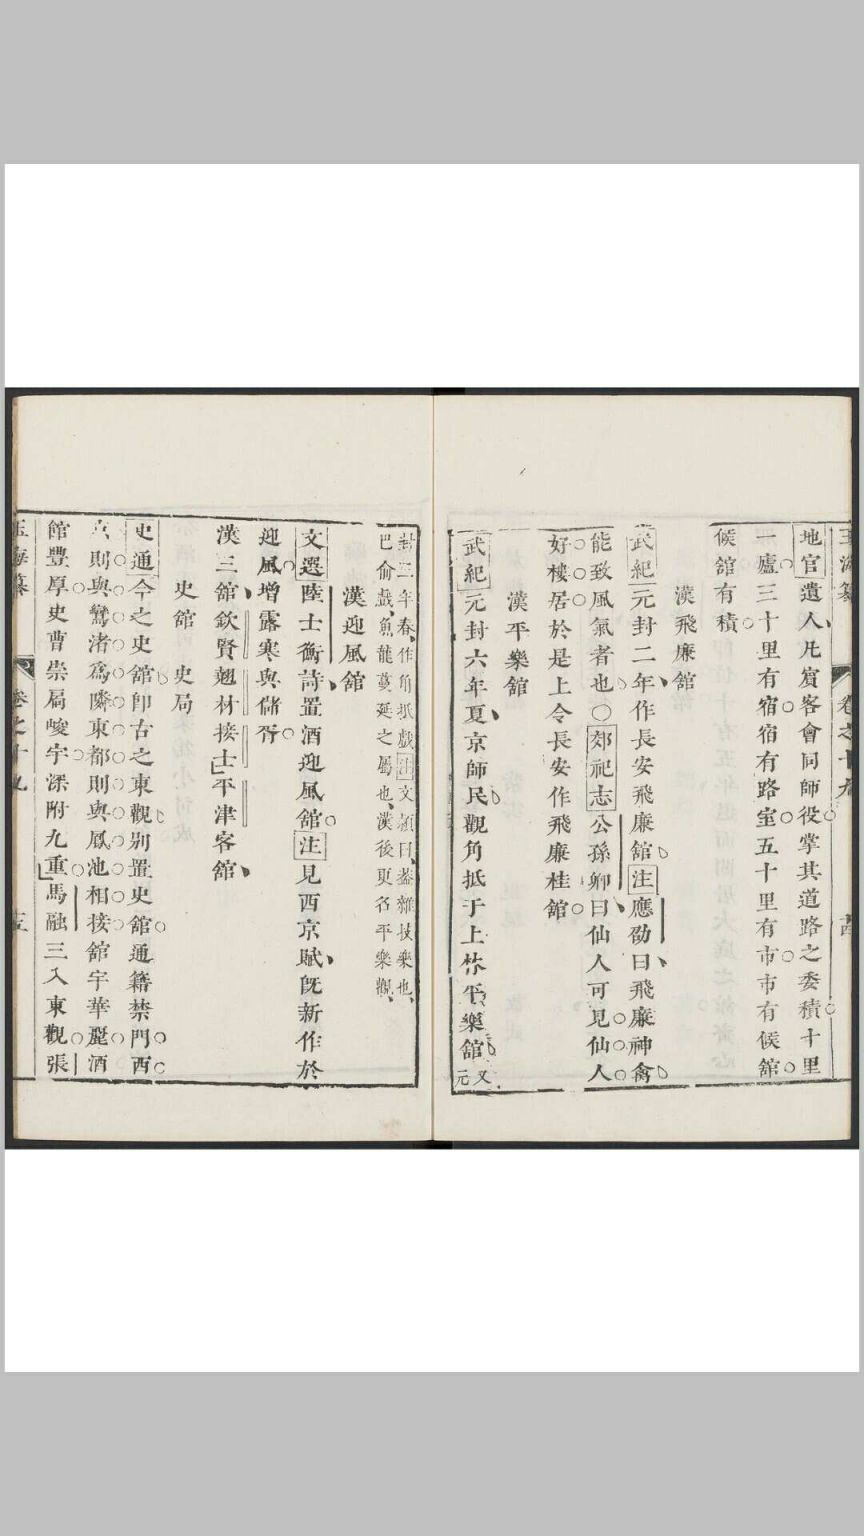 地官遺人凡賔客會同師役掌其道路之委積十里
一廬三十里有宿宿有路室五十里有市市有候舘
候舘有積
漢飛廉舘
武紀元封二年作長安飛廉舘注應劭曰飛廉神禽
能致風氣者也○郊祀志公孫卿曰仙人可見仙人
好樓居於是上令長安作飛廉桂舘
漢平樂舘
武紀元封六年夏京師民觀角抵于上林平樂舘又元
封三年春作角抵戲注文頴曰葢雜技樂也
巴俞戲魚龍蔓延之屬也漢後更名平樂觀
漢迎風舘
文選陸士衡詩置酒迎風舘注見西京賦旣新作於
迎風增露寒與儲胥
漢三舘欽賢翹材接士平津客舘
史舘 史局
史通今之史舘卽古之東觀别置史舘通籍禁門西
則與鸞渚爲隣東都則與鳳池相接舘宇華麗酒
館豐厚史曹崇扃峻宇深附九重馬融三入東觀張
卷之十九